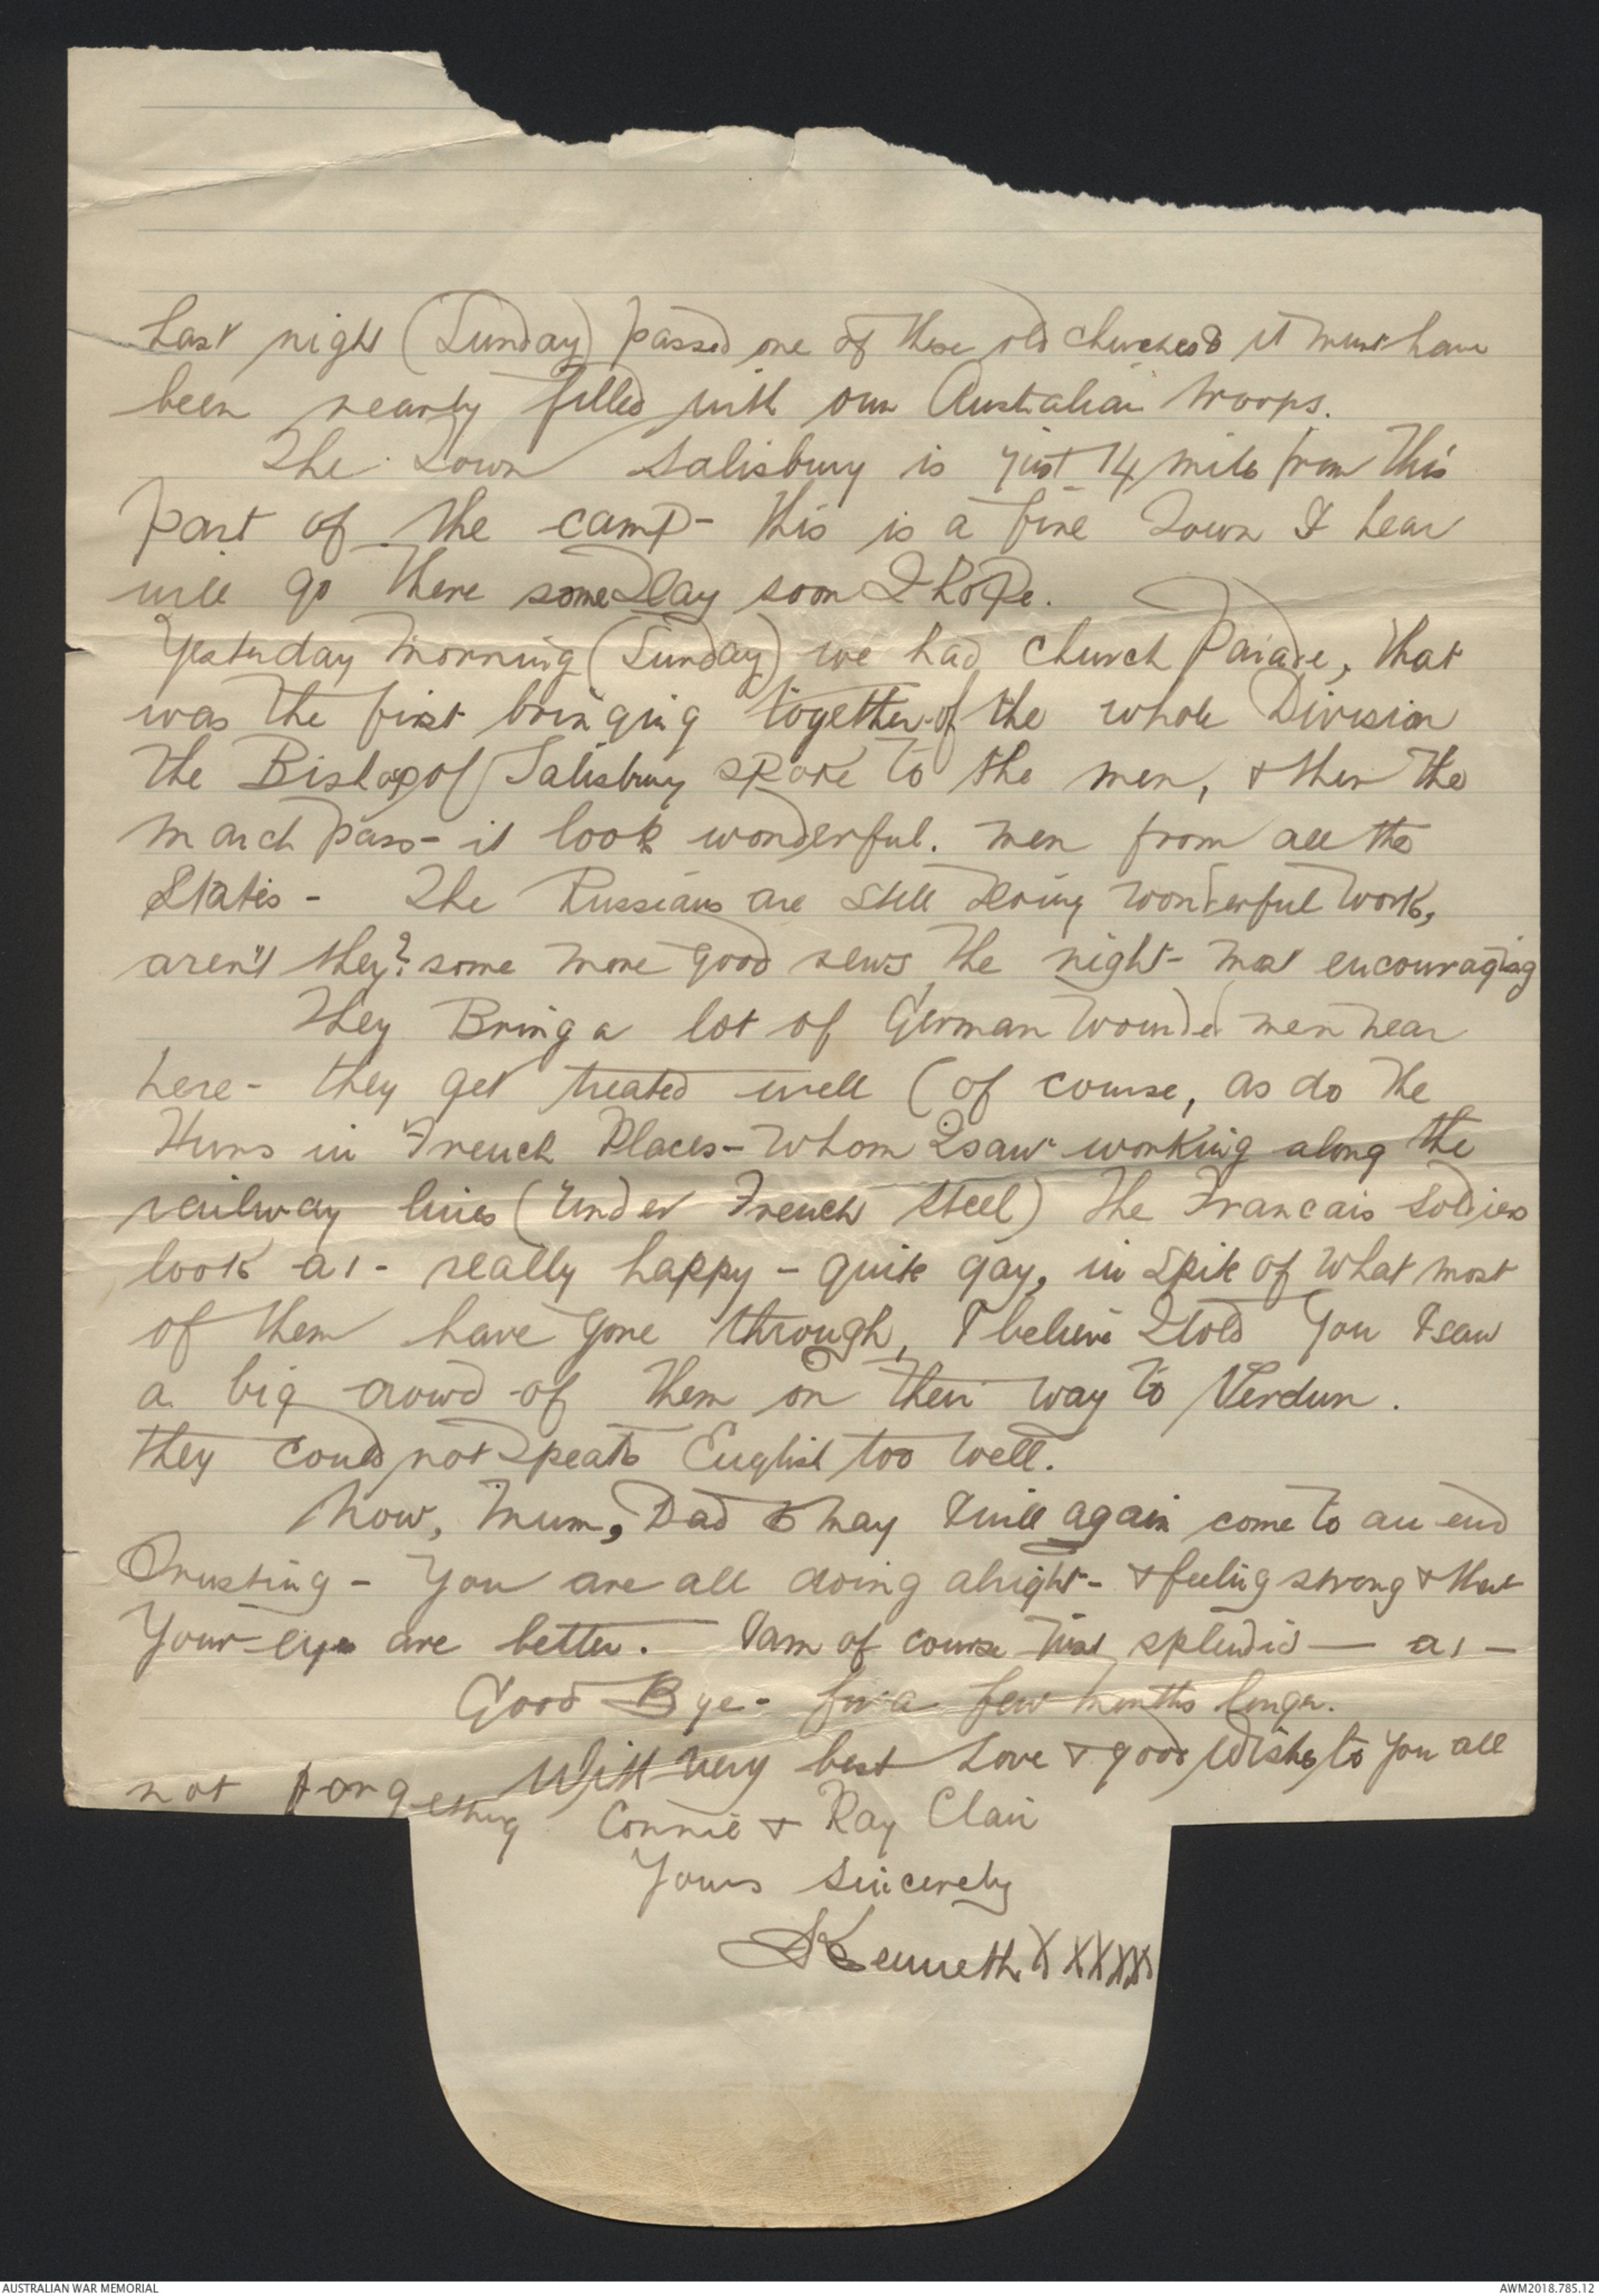 Last night (Sunday) passed one of these old churches & it must have
been nearly filled with our Australian troops.
The Town Salisbury is just 14 miles from this
part of the camp - this is a fine Town I hear
will go there some Day soon I hope.
Yesterday morning (Sunday) we had church Parade, that
was the first bringing together of the whole Division
the Bishop of Salisbury spoke to the men, & then the
march pass - it look wonderful. men from all the
States - The Russians are still doing wonderful work,
aren't they? some more good news the night - most encouraging
They Bring a lot of German wounded men near
here - they get treated well (of course, as do the
Huns in French Places - whom I saw working along the
railway lines (under French steel) The Francais soldiers
look a1 - really happy - quite gay, in spite of what most
of them have gone through, I believe I told you I saw
a big crowd of them on their way to Verdun.
they could not speak English too well.
Now, Mum, Dad & May I will again come to an end
Trusting - you are all doing alright - & feeling strong & that
Your eyes are better. I am of course splendid - a1 -
Good Bye - for a few months longer.
With very best Love & good wishes to you all
not forgetting Connie & Ray Clair
Yours Sincerely
Kenneth X XXXXX
AUSTRALIAN WAR MEMORIAL
AWM2018.785.12